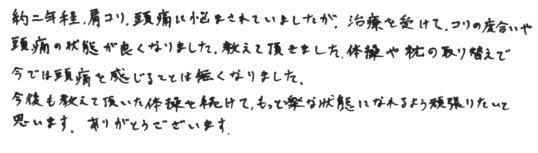 約二年程、肩コリ、頭痛に悩まされていましたが、治療を受けて、コリの度合いや
頭痛の状態が良くなりました。教えて頂きました、体操や枕の取り替えで
今では頭痛を感じることは無くなりました。
今後も教えて頂いた体操を続けて、もっと楽な状態になれるよう頑張りたいと
思います。ありがとうございます。